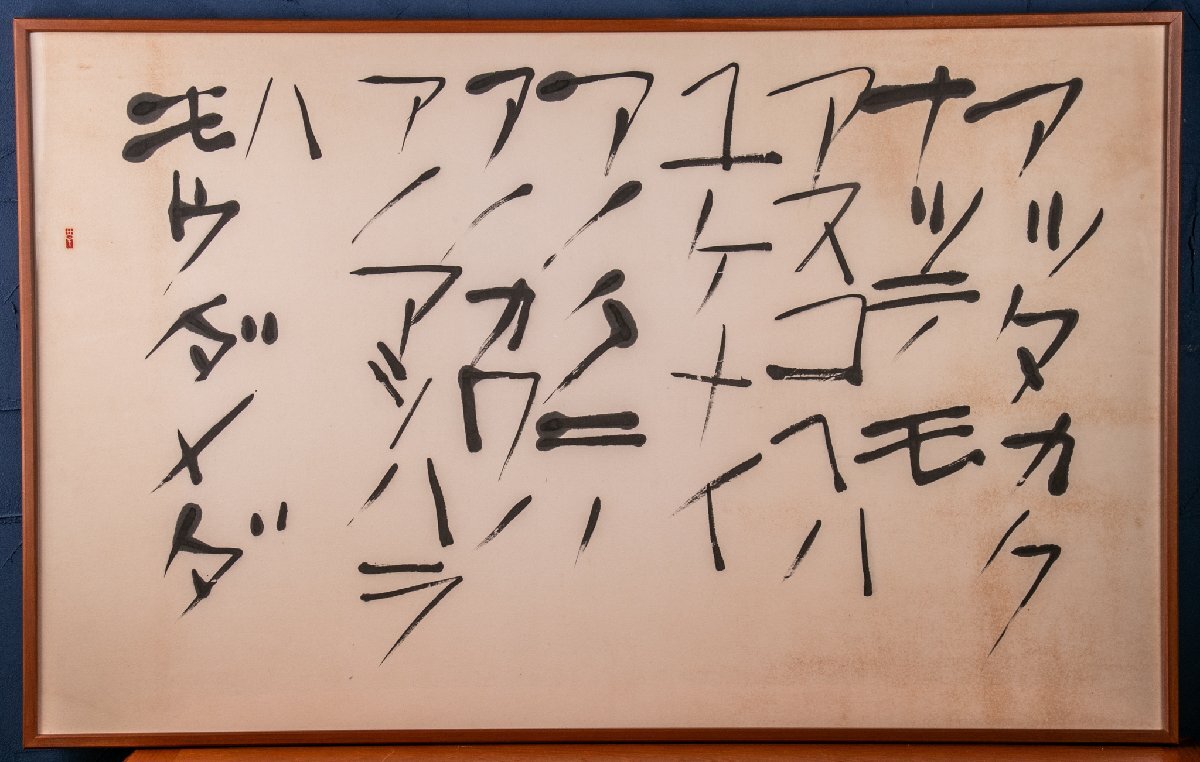 アッタカク
ナッテモ
アスコヘハ
ユケメイ
アノクニノ
アノカワノ
アノアシハラ
ハ
モウダメダ